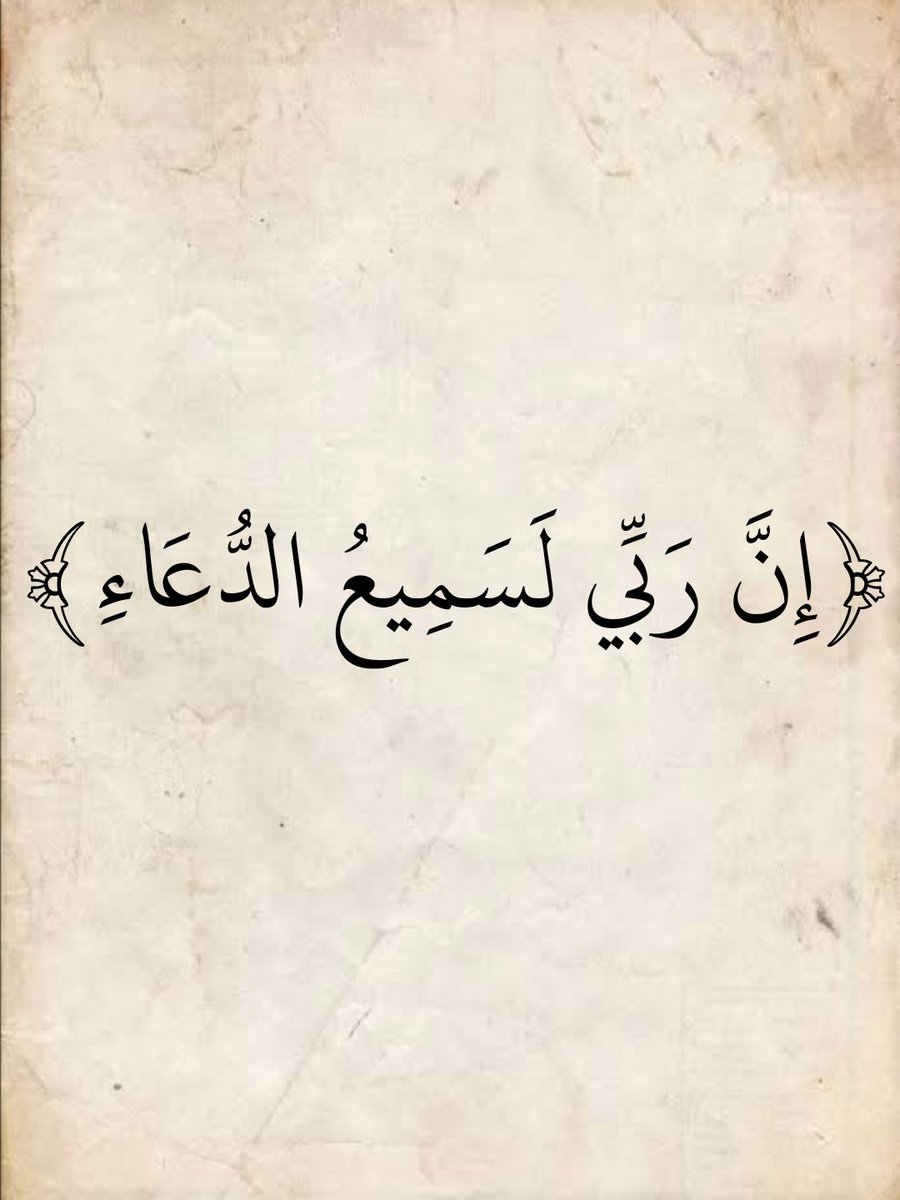 ﴿إِنَّ رَبِّي لَسَمِيعُ الدُّعَاءِ﴾